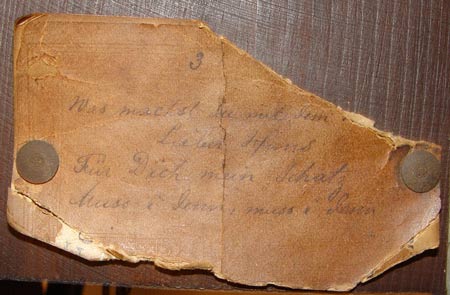 3
Was machst du mit dem
Lieber Hans
Für Dich mein Schatz
Muss i denn, muss i denn